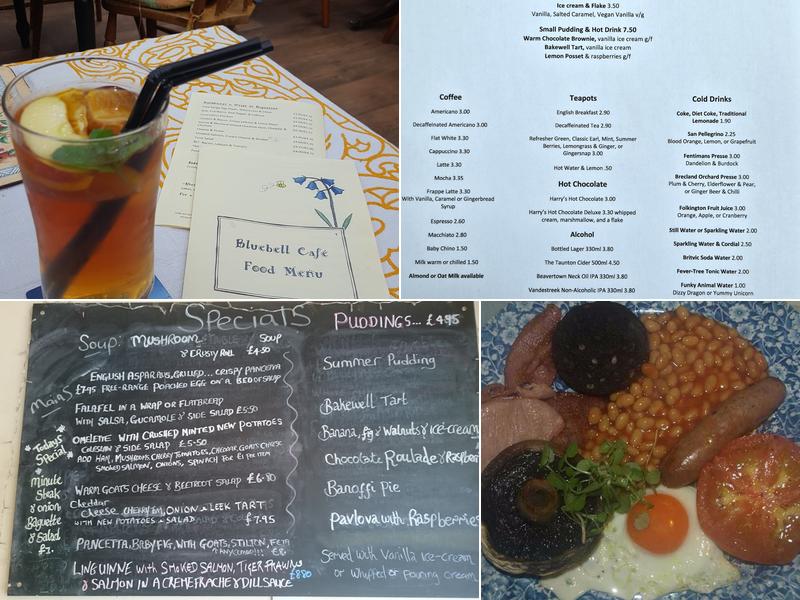 Bluebell Café
Food Menu
Ice cream & Flake 3.50
Vanilla, Salted Caramel, Vegan Vanilla v/g
Small Pudding & Hot Drink 7.50
Warm Chocolate Brownie, vanilla ice cream g/f
Bakewell Tart, vanilla ice cream
Lemon Posset & raspberries g/f
Coffee
Americano 3.00
Decaffeinated Americano 3.00
Flat White 3.30
Cappuccino 3.30
Latte 3.30
Mocha 3.35
Frappe Latte 3.30
With Vanilla, Caramel or Gingerbread
Syrup
Espresso 2.60
Macchiato 2.80
Baby Chino 1.50
Milk warm or chilled 1.50
Almond or Oat Milk available
Teapots
English Breakfast 2.90
Decaffeinated Tea 2.90
Refresher Green, Classic Earl, Mint, Summer
Berries, Lemongrass & Ginger, or
Gingersnap 3.00
Hot Water & Lemon .50
Hot Chocolate
Harry's Hot Chocolate 3.00
Harry's Hot Chocolate Deluxe 3.30 whipped
cream, marshmallow, and a flake
Alcohol
Bottled Lager 330ml 3.80
The Taunton Cider 500ml 4.50
Beavertown Neck Oil IPA 330ml 3.80
Vandestreek Non-Alcoholic IPA 330ml 3.80
Cold Drinks
Coke, Diet Coke, Traditional
Lemonade 1.90
San Pellegrino 2.25
Blood Orange, Lemon, or Grapefruit
Fentimans Presse 3.00
Dandelion & Burdock
Brecland Orchard Presse 3.00
Plum & Cherry, Elderflower & Pear,
or Ginger Beer & Chilli
Folkington Fruit Juice 3.00
Orange, Apple, or Cranberry
Still Water or Sparkling Water 2.00
Sparkling Water & Cordial 2.50
Britvic Soda Water 2.00
Fever-Tree Tonic Water 2.00
Funky Animal Water 1.00
Dizzy Dragon or Yummy Unicorn
Specials
Soup: MUSHROOM SOUP
& CRUSTY ROLL £4.50
Mains
ENGLISH ASPARAGUS, GRILLED... CRISPY PANCETTA
£7.95 FREE-RANGE POACHED EGG ON A BED OF SALAD
FALAFEL IN A WRAP OR FLATBREAD
WITH SALSA, GUCAMOLE & SIDE SALAD £5.50
OMELETTE WITH CRUSHED MINTED NEW POTATOES
COLESLAW & SIDE SALAD £5.50
ADD HAM, MUSHROOMS, CHERRY TOMATOES, CHEDDAR, GOATS CHEESE
SMOKED SALMON, ONIONS, SPINACH FOR £1 PER ITEM
WARM GOATS CHEESE & BEETROOT SALAD £6.80
Cheddar
Cheese, CHERRY TOM, ONION & LEEK TART
WITH NEW POTATOES & SALAD £7.95
PANCETTA, BABY FIG, WITH GOATS, STILTON, FETA
LINGUINNE WITH SMOKED SALMON, TIGER PRAWNS
& SALMON IN A CREME FRACHE & DILL SAUCE £8.80
Todays
Special
Minute
Steak
& onion
Baguette
& Salad
£7.
PUDDINGS... £4.95
Summer Pudding
Bakewell Tart
Banana, fig & Walnuts & ice-cream
Chocolate Roulade & Raspber
Banoffi Pie
Pavlova with Raspberries
Served with Vanilla Ice-Cream
or Whipped or Pouring Cream